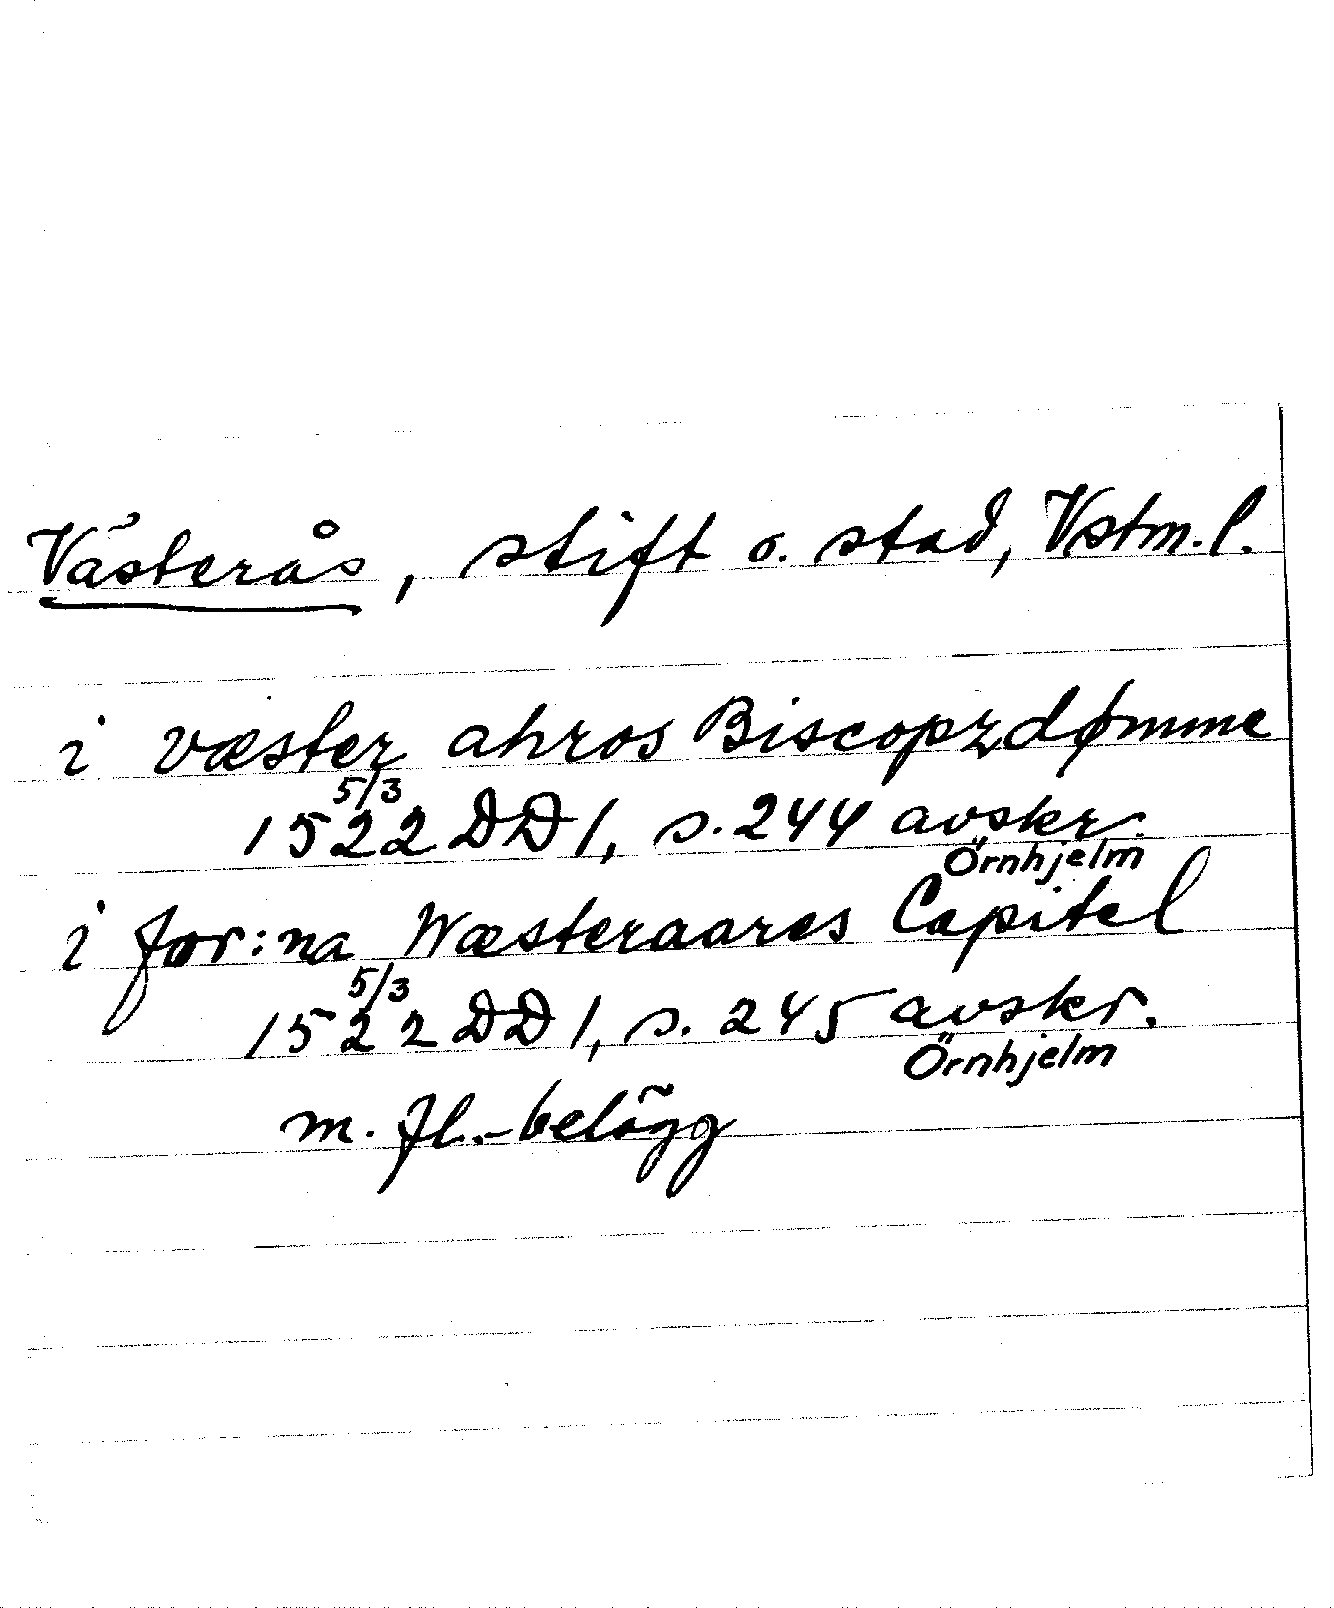 Västerås, stift o. stad, Vstm. l.
i væster ahros Biscopzdømme
1522 5/3 DD 1, s. 244 avskr. Örnhjelm
i for:na Wæsteraares Capitel
1522 5/3 DD 1, s. 245 avskr. Örnhjelm
m. fl.-belägg